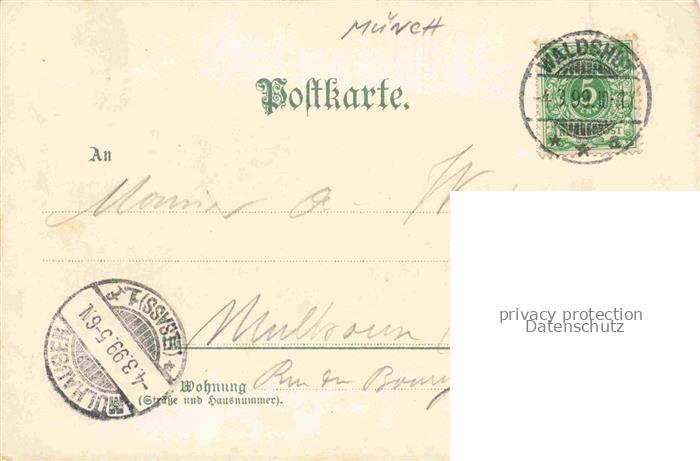 MÜNCH
WALDSHUT
4.3.99.
5
* * a
Postkarte.
An
Monsieur a. W
privacy protection
Datenschutz
MÜLHAUSEN
-4.3.99.5-6N.
*(ELSASS)1.
Mulhouse
Wohnung
(Straße und Hausnummer).
Rue du Bourg